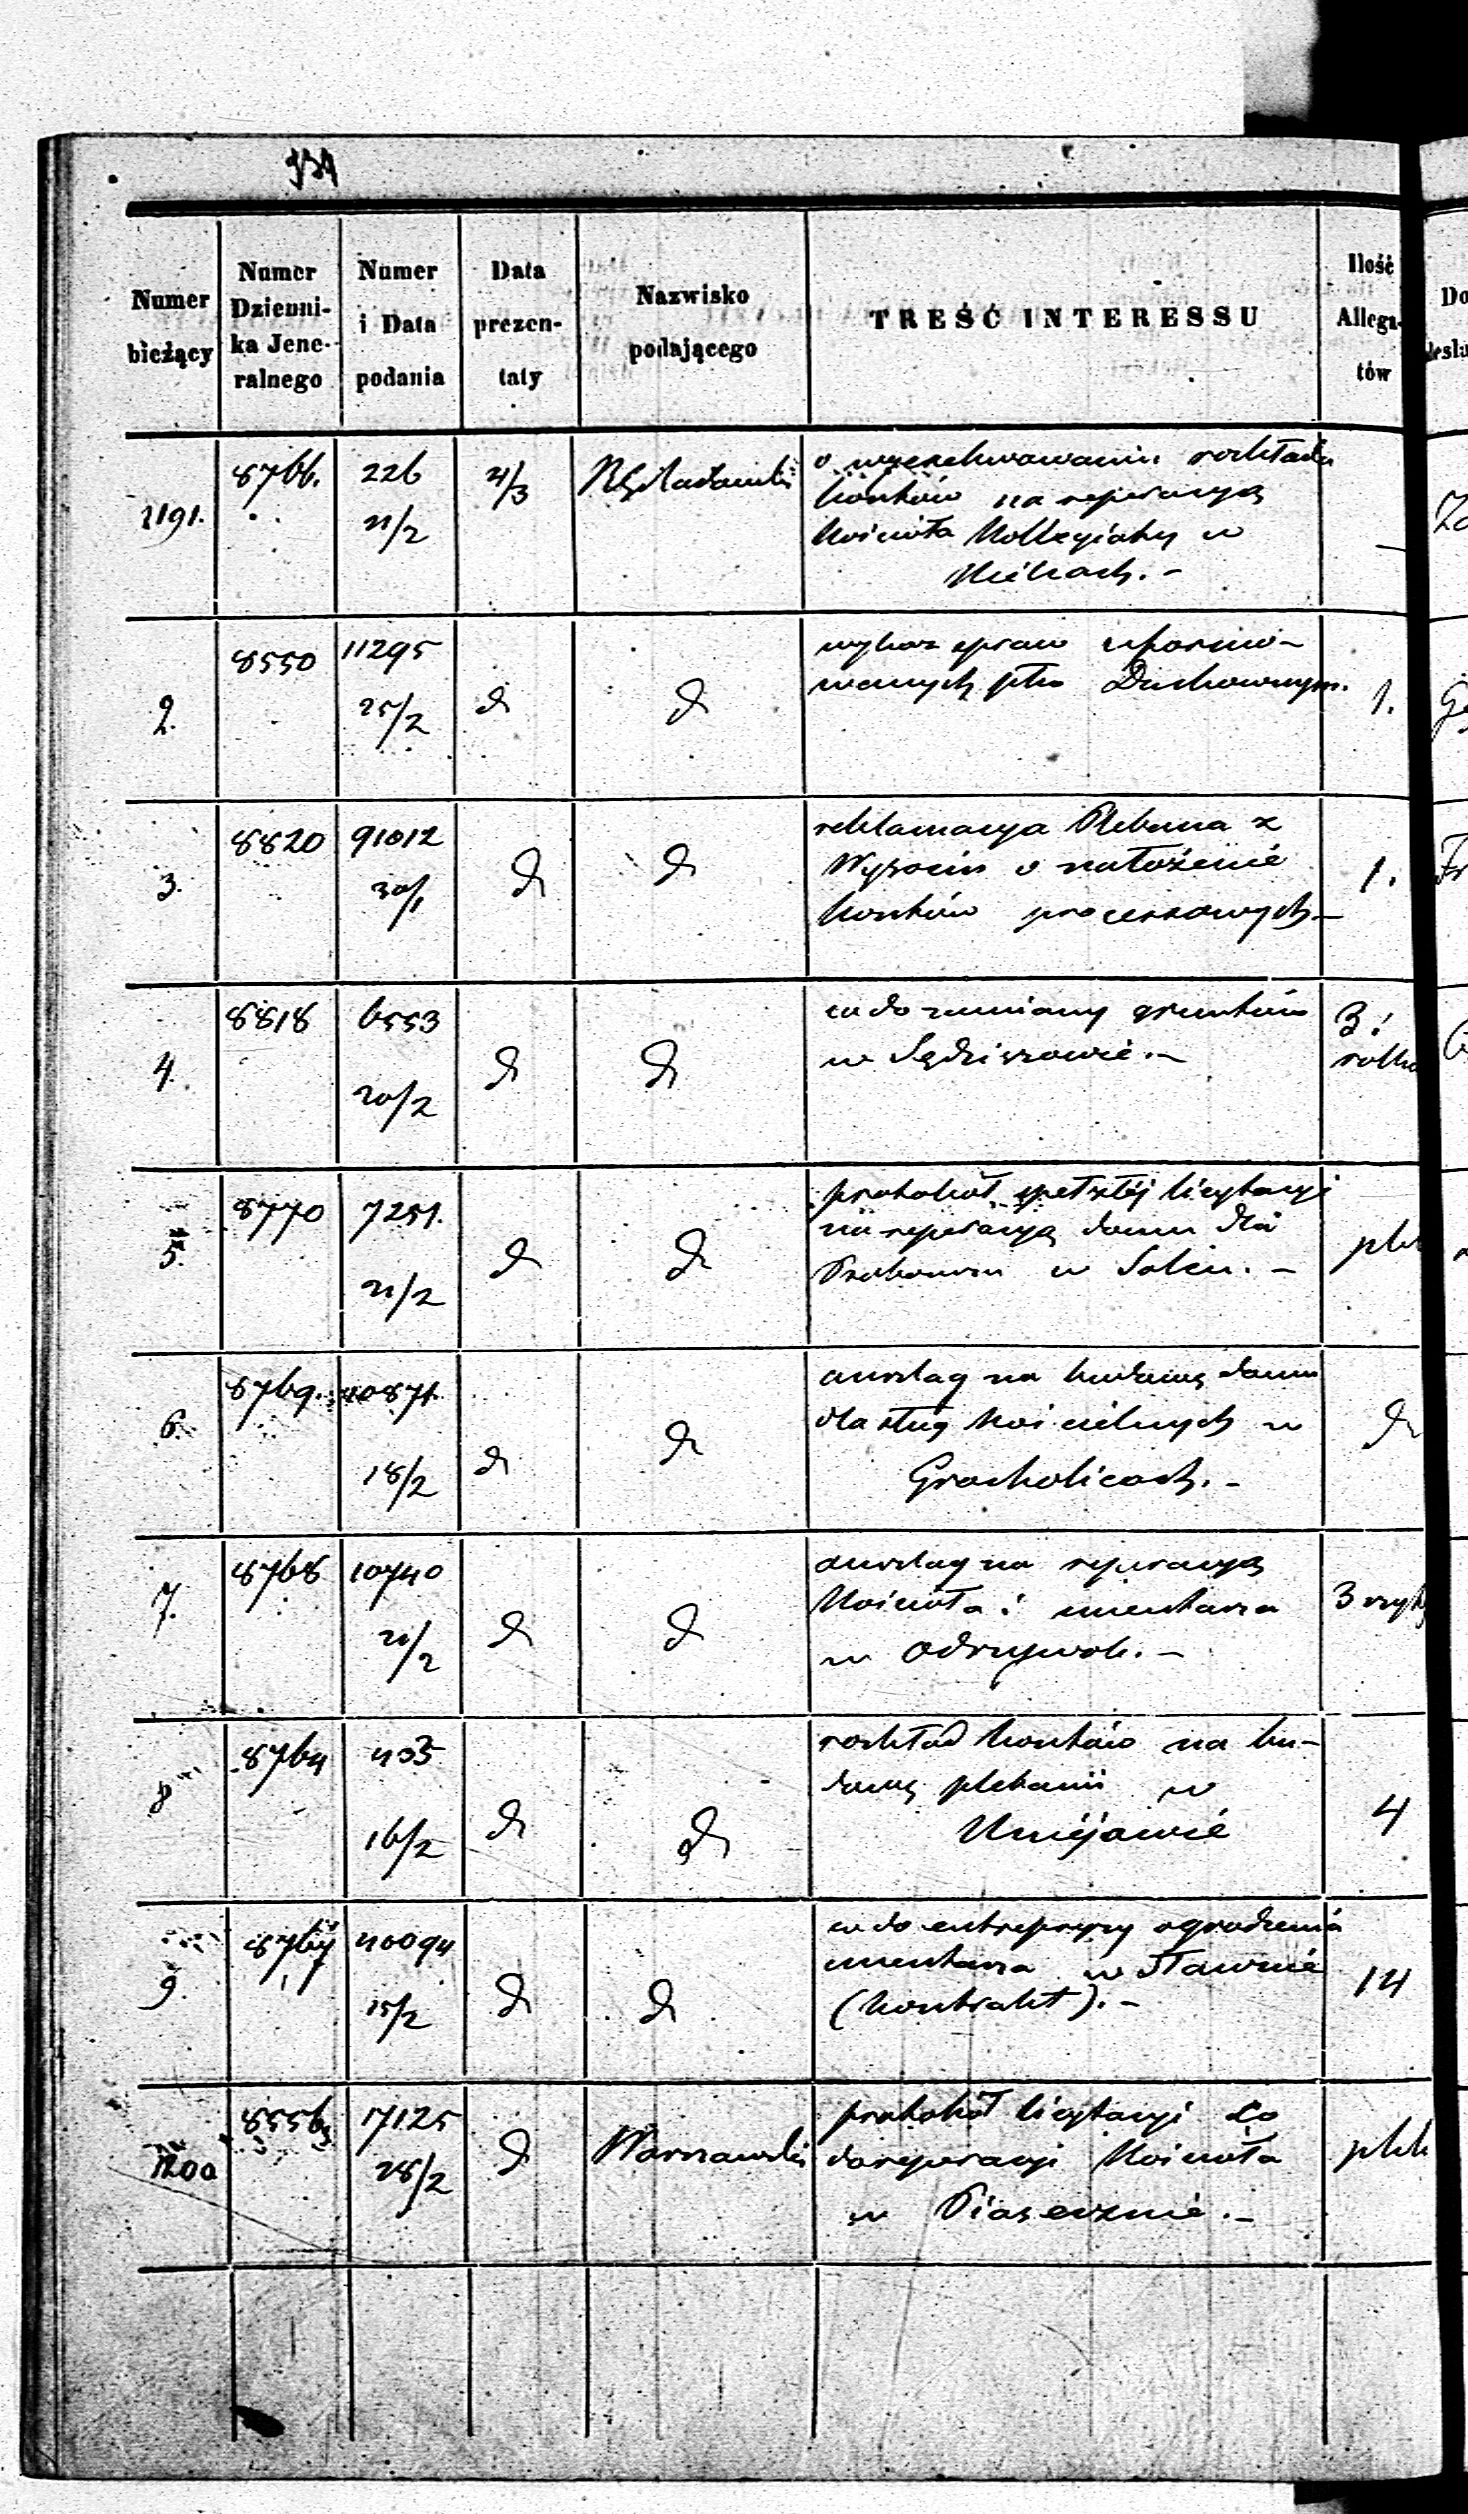 Numer bieżący
Numer Dzienni- ka Jene- ralnego
Numer i Data podania
Data prezen- taty
Nazwisko podającego
TREŚĆ INTERESSU
Ilość Allega- tów
1191. 8766. 226 21/2 4/3 RGRadomski
o wyexekwowaniu rozkładu
kosztów na reperacyą
Kościoła Kollegiaty w
Kielcach. –
2. 8550 11295 25/2 d d 1.
wykaz spraw uformo-
wanych pko Duchownym.
3. 8820 91012 30/1 d d 1.
reklamacya Plebana z
Wysocin o nałożenie
kosztów processowych. –
4. 8818 6553 20/2 d d 3.
co do zamiany gruntów
w Sędziszowie. –
5. 8770 7251. 21/2 d d
protokół spełzłéj licytacyi
na reperacyą domu dla
Proboszcza w Solcu. –
6. 8769. 40871. 18/2 d d d
anszlag na budowę domu
dla sług kościelnych w
Grocholicach. –
7. 8768 10740 21/2 d d 3
anszlag na reperacyą
Kościoła i cmentarza
w Odrzywole. –
8 8764 403 16/2 d d 4
rozkład kosztów na bu-
dowę plebanii w
Uniejowie
9. 8767 40094 15/2 d d 14
co do entrepryzy ogrodzenia
cmentarza w Sławnie
(kontrakt). –
1200 8556 17125 28/2 d Warszawski
protokół licytacyi co
do reperacyi Kościoła
w Piasecznie. –